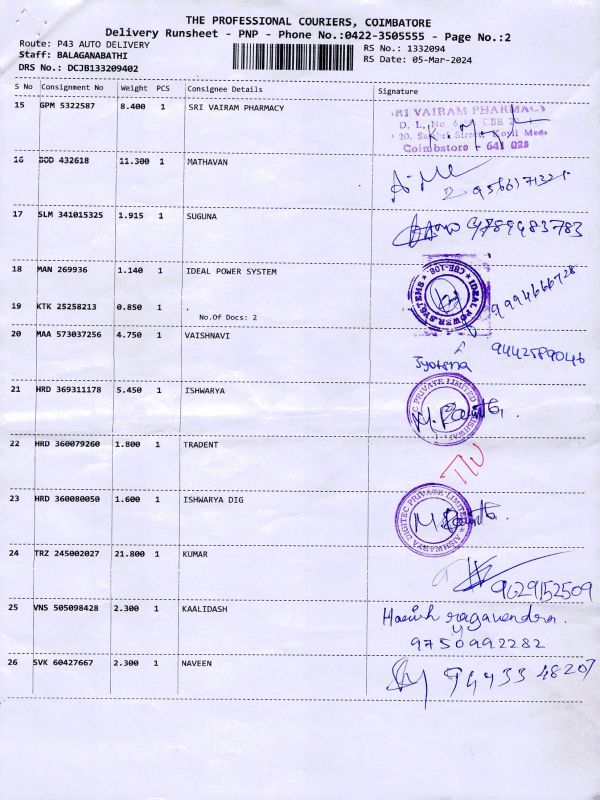 THE PROFESSIONAL COURIERS, COIMBATORE
Delivery Runsheet - PNP - Phone No.:0422-3505555 - Page No.:2
Route: P43 AUTO DELIVERY
RS No.: 1332094
Staff: BALAGANABATHI
RS Date: 05-Mar-2024
DRS No.: DCJB133209402
S No Consignment No Weight PCS Consignee Details Signature
15 GPM 5322587 8.400 1 SRI VAIRAM PHARMACY
SRI VAIRAM PHARMACY
D. L. No CBE
20, Street, Koyil Medu
Coimbatore - 641 025
16 BOD 432618 11.300 1 MATHAVAN
17 SLM 341015325 1.915 1 SUGUNA
9789483783
18 MAN 269936 1.140 1 IDEAL POWER SYSTEM
IDEAL POWER SYSTEMS
9994666728
19 KTK 25258213 0.850 1 .
No.Of Docs: 2
20 MAA 573037256 4.750 1 VAISHNAVI
9442589046
Jyotsna
21 HRD 369311178 5.450 1 ISHWARYA
PRIVATE LIMITED
22 HRD 360079260 1.800 1 TRADENT
23 HRD 360080050 1.600 1 ISHWARYA DIG
AISHWARYA DIGITEC PRIVATE LIMITED
24 TRZ 245002027 21.800 1 KUMAR
9629152509
25 VNS 505098428 2.300 1 KAALIDASH
Harish ragavendra.
9750992282
26 SVK 60427667 2.300 1 NAVEEN
94433 48207